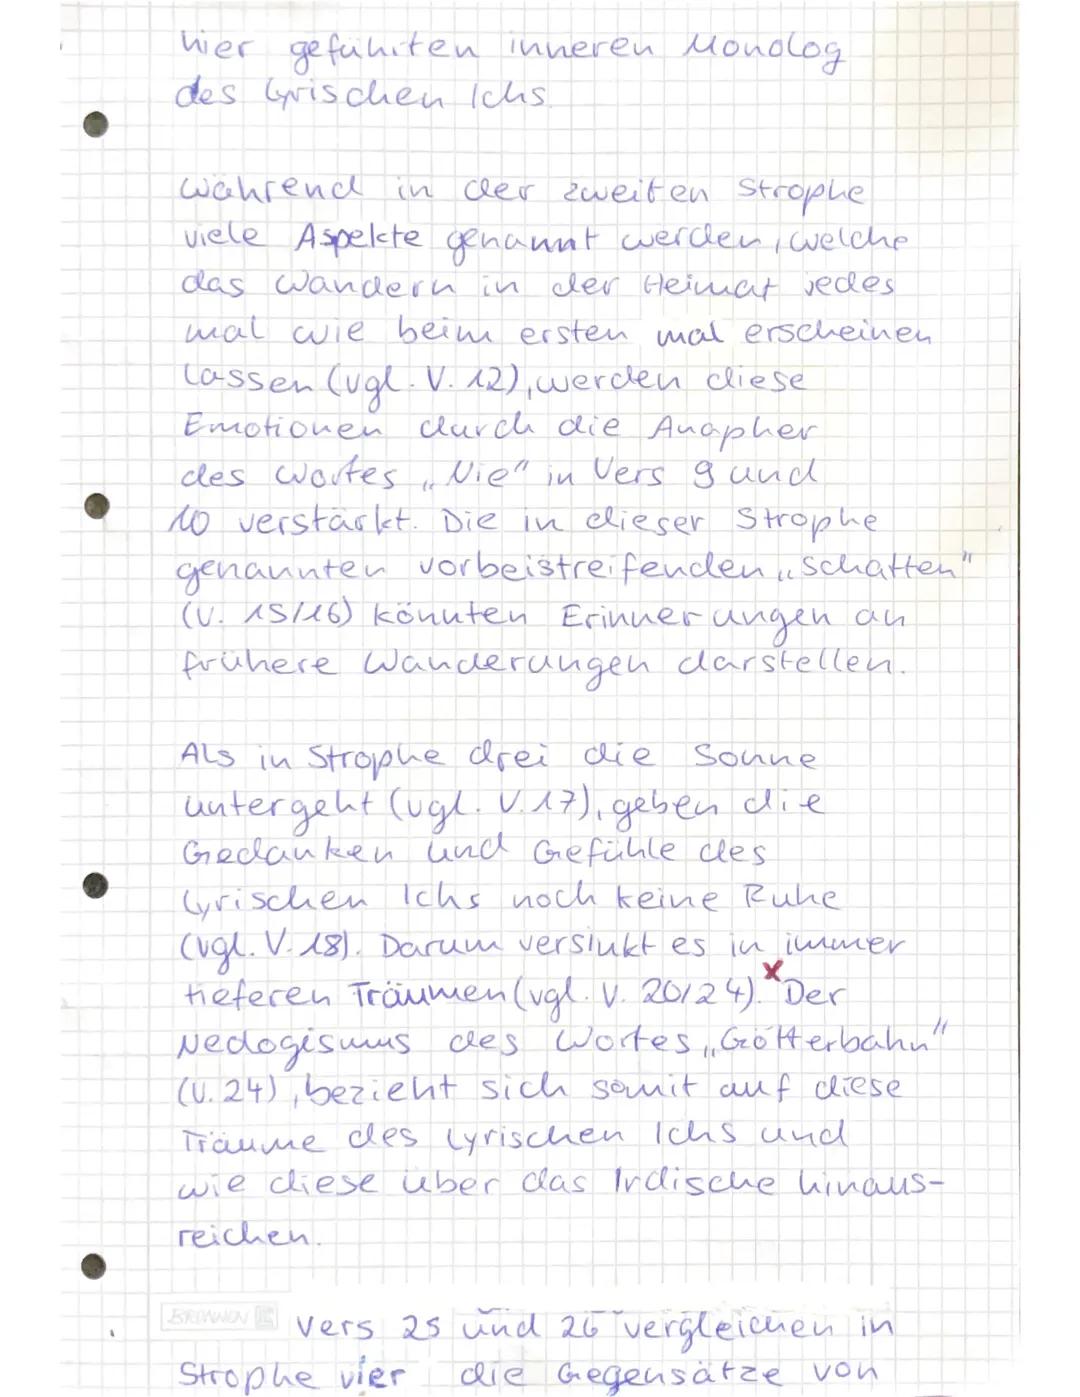 hier geführten inneren Monolog
des lyrischen Ichs.
Während in der zweiten Strophe
viele Aspekte genannt werden, welche
das Wandern in der Heimat jedes
mal wie beim ersten mal erscheinen
lassen (vgl. V. 12), werden diese
Emotionen durch die Anapher
des Wortes „Nie" in Vers 9 und
10 verstärkt. Die in dieser Strophe
genannten vorbeistreifenden „Schatten"
(V. 15/16) könnten Erinnerungen an
frühere Wanderungen darstellen.
Als in Strophe drei die Sonne
untergeht (vgl. V. 17), geben die
Gedanken und Gefühle des
lyrischen Ichs noch keine Ruhe
(vgl. V. 18). Darum versinkt es in immer
tieferen Träumen (vgl. V. 20/24). x Der
Neologismus des Wortes „Götterbahn"
(V. 24), bezieht sich somit auf diese
Träume des lyrischen Ichs und
wie diese über das Irdische hinaus-
reichen.
BRUNNEN
Vers 25 und 26 vergleichen in
Strophe vier die Gegensätze von